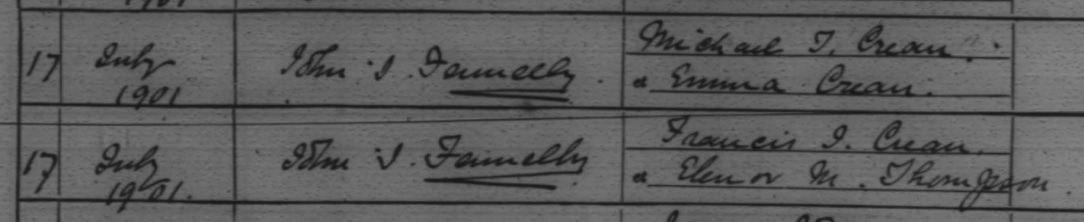 1901
17 July 1901 John S. Fennelly Michael T. Crean
& Emma Crean.
17 July 1901. John S. Fennelly Francis J. Crean
& Elenor M. Thompson.